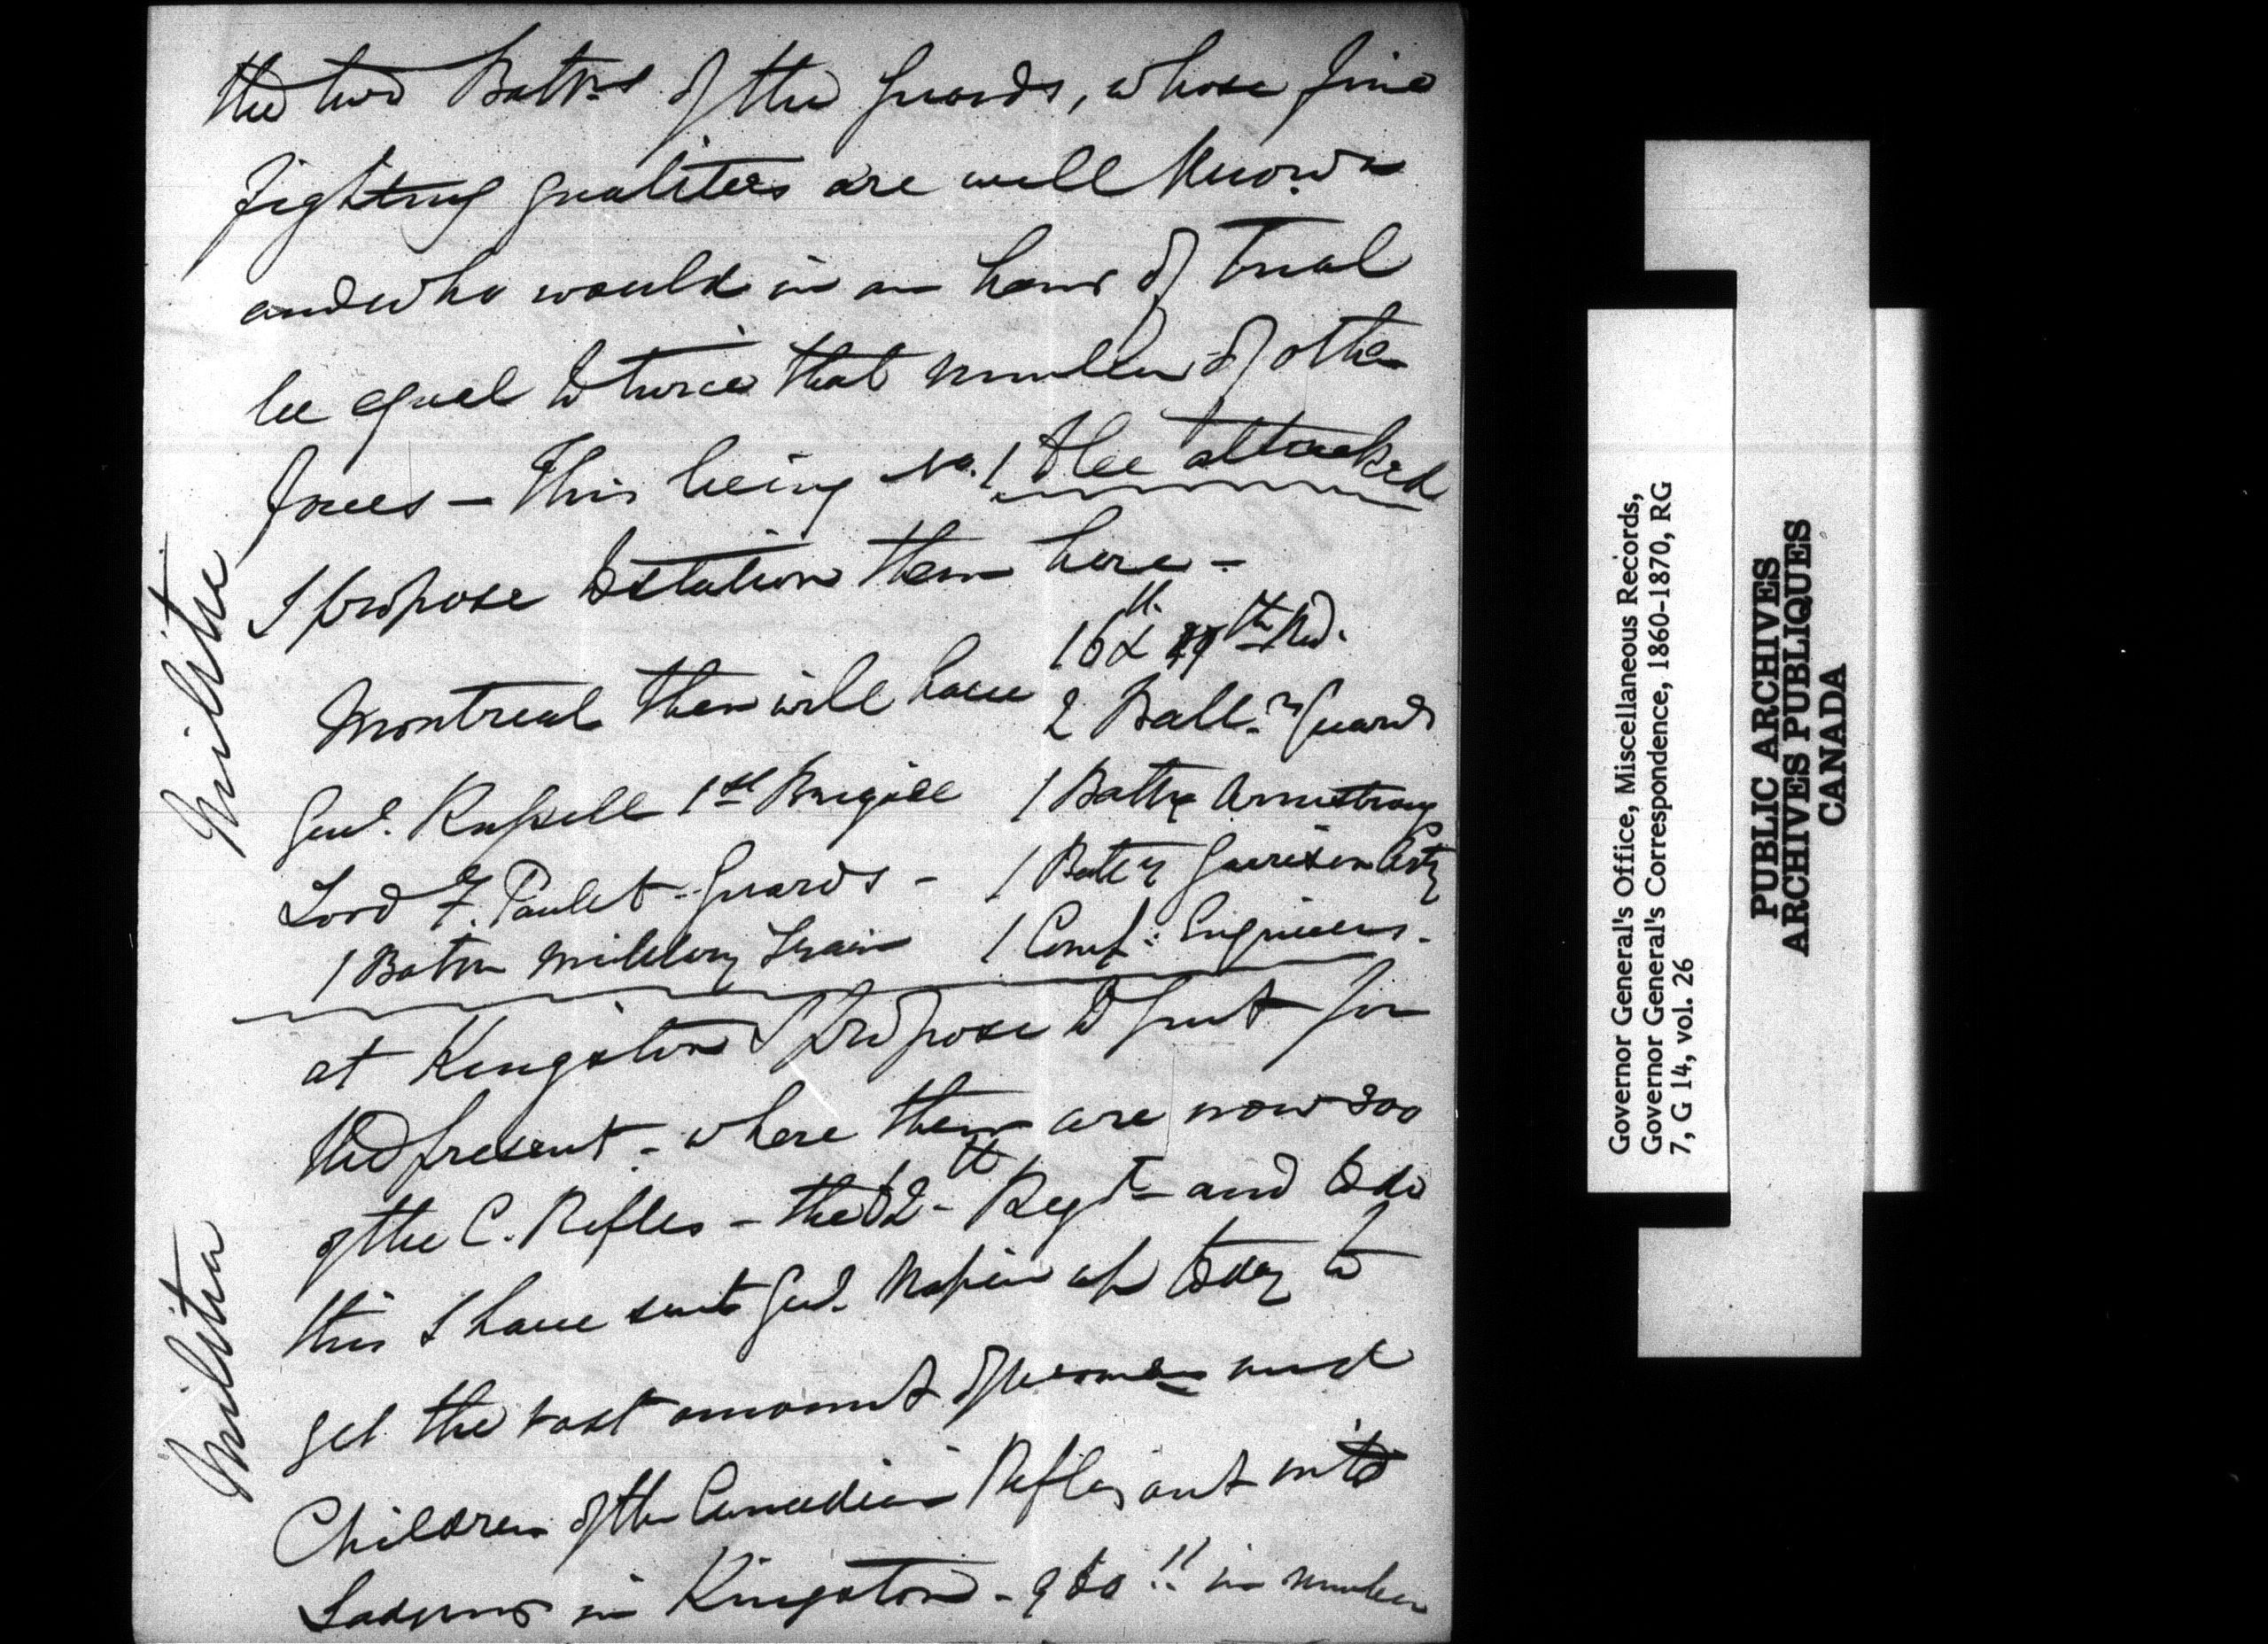 the two Battns of the Guards, whose fine
fighting qualities are well known
and who would in an hour of Trial
be equal to twice that number of other
forces - This being No. 1 to be attacked
I propose to station them here -
16th & 47th Red.
Montreal then will have 2 Battns Guards
Genl. Russell 1st Brigde 1 Batty Armstrong
Lord F. Paulet - Guards - 1 Battery Garrison Arty
1 Batn Military Train 1 Comp: Engineers.
at Kingston I propose to put for
the present - where there are now 300
of the C. Rifles - the 62nd Regt and to do
this I have sent Genl. Napier up today to
get the vast amount of women and
Children of the Canadian Rifles out into
Lodgings in Kingston - 980 !! in number
Militia
Militia
Governor General's Office, Miscellaneous Records,
Governor General's Correspondence, 1860-1870, RG
7, G 14, vol. 26
PUBLIC ARCHIVES
ARCHIVES PUBLIQUES
CANADA